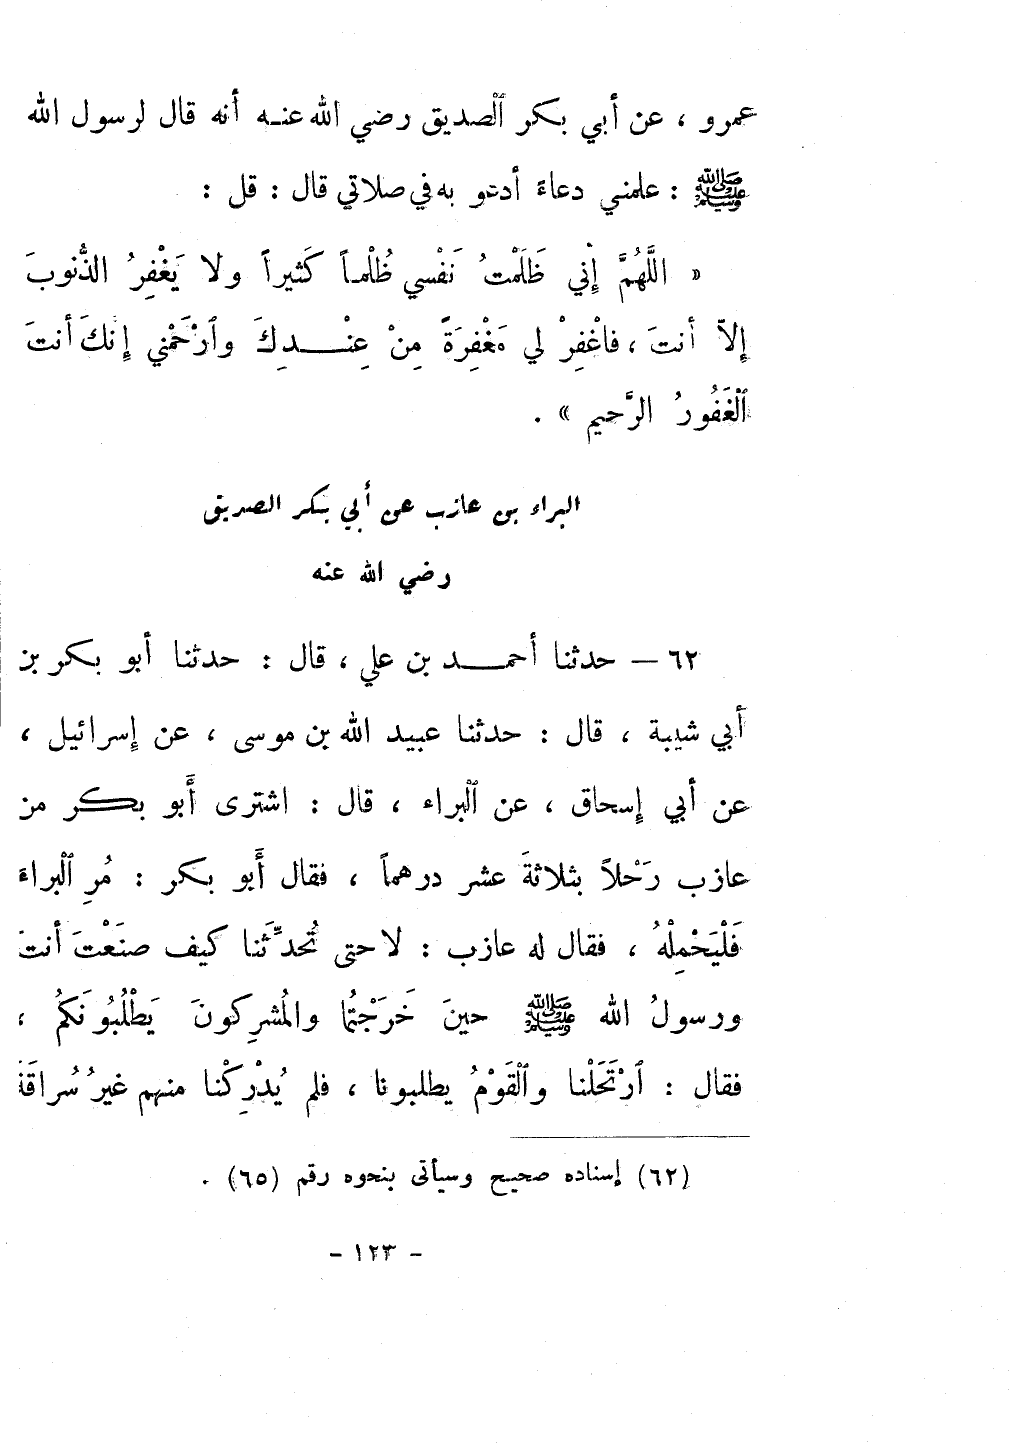 عمرو ، عن أبي بكر ٱلصديق رضي الله عنه أنه قال لرسول الله
ﷺ : علمني دعاءً أدعو به في صلاتي قال : قل :
« اللَّهُمَّ إِني ظَلَمْتُ نَفْسي ظُلْماً كَثيراً ولا يَغْفِرُ الذُّنوبَ
إِلاّ أنتَ ، فاغْفِرْ لي مَغْفِرَةً مِنْ عِنْدِكَ وٱرْحَمْني إِنكَ أنتَ
ٱلْغَفُورُ الرَّحيم » .
البراء بن عازب عن أبي بكر الصديق
رضي الله عنه
٦٢ – حدثنا أحمد بن علي ، قال : حدثنا أبو بكر بن
أبي شيبة ، قال : حدثنا عبيد الله بن موسى ، عن إسرائيل ،
عن أبي إسحاق ، عن ٱلبراء ، قال : اشترى أَبو بكر من
عازب رَحْلاً بثلاثةَ عشر درهماً ، فقال أَبو بكر : مُرِ ٱلْبراءَ
فَلْيَحْمِلْهُ ، فقال له عازب : لا حتى تُحدِّثَنا كيف صنَعْتَ أنتَ
ورسولُ الله ﷺ حينَ خَرَجْتُما والمُشرِكونَ يَطْلُبُونَكُم ،
فقال : ٱرْتَحَلْنا وٱلْقَوْمُ يطلبونا ، فلم يُدْرِكْنا منهم غيرُ سُراقَةَ
(٦٢) إسناده صحيح وسيأتي بنحوه رقم (٦٥) .
- ١٢٣ -